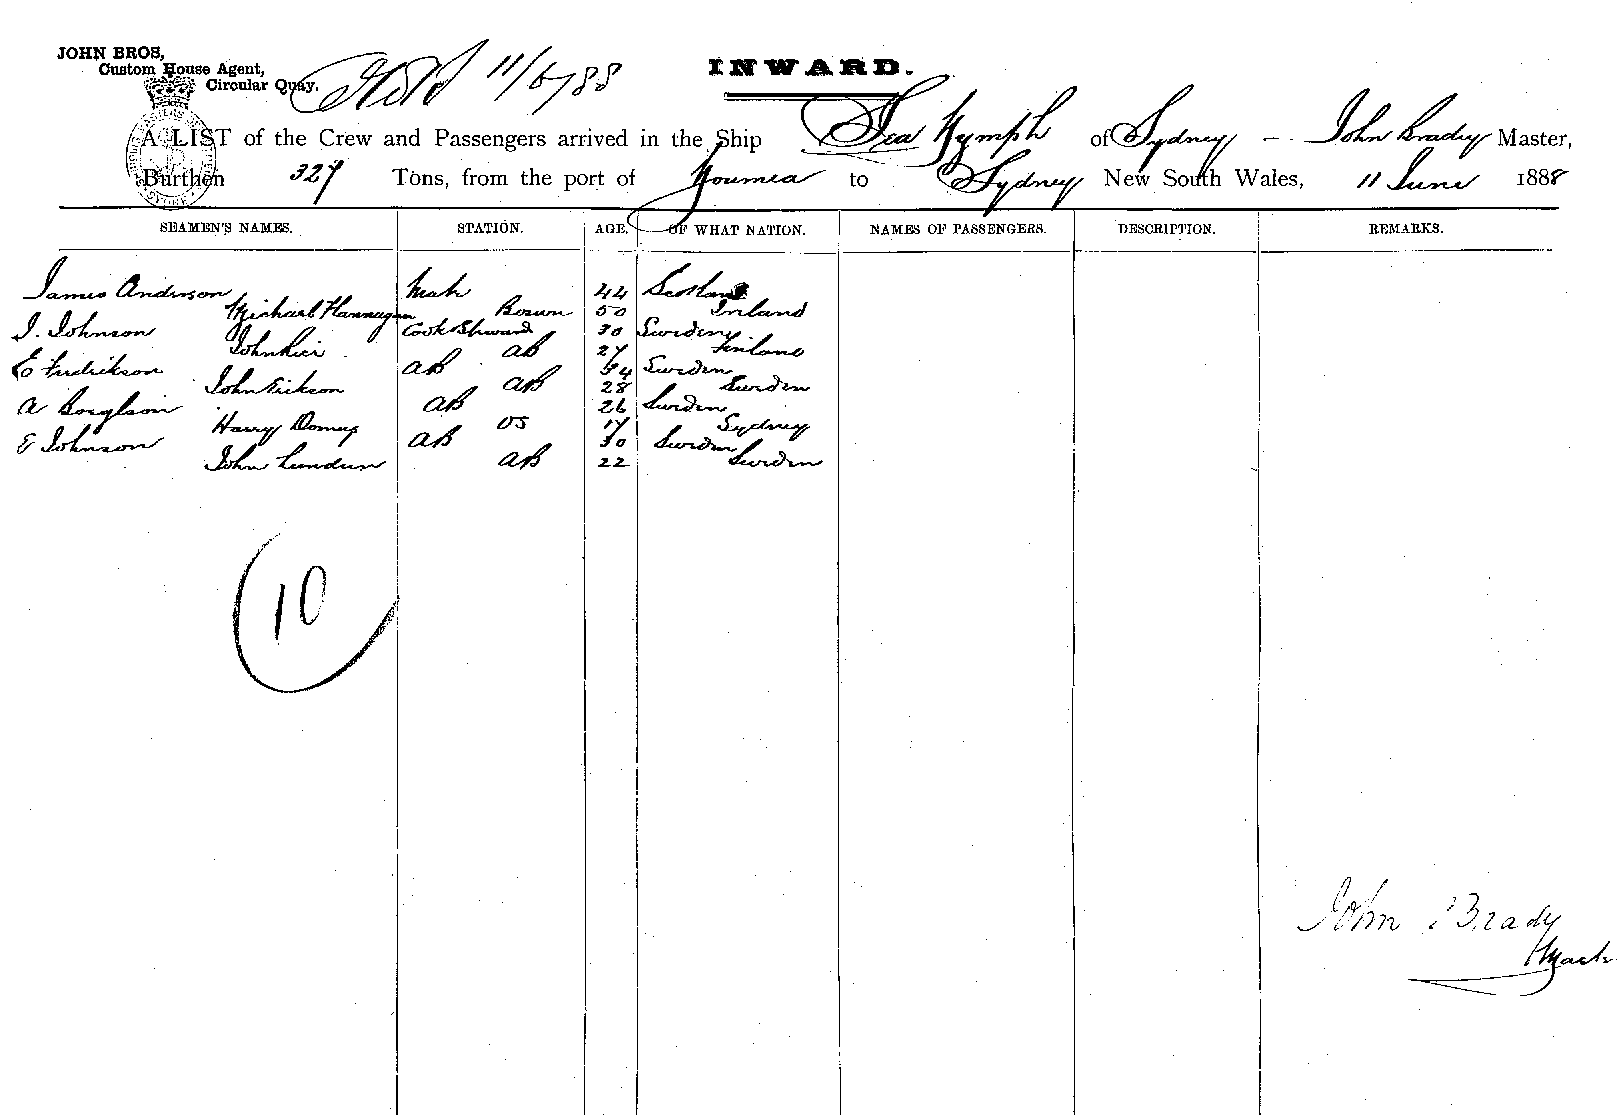 JOHN BROS,
Custom House Agent,
Circular Quay.
11/6/88
INWARD.
A LIST of the Crew and Passengers arrived in the Ship Sea Nymph of Sydney - John Brady Master,
Burthen 327 Tons, from the port of Noumea to Sydney New South Wales, 11 June 1888
SEAMEN'S NAMES. STATION. AGE. OF WHAT NATION. NAMES OF PASSENGERS. DESCRIPTION. REMARKS.
James Anderson Mate 44 Scotland
Michael Flannagan Bosun 50 Ireland
J. Johnson Cook & Steward 30 Sweden
John 27 Finland AB
E Fredrikson AB 34 Sweden
John Erickson AB 28 Sweden
A AB 26 Sweden
Harry OS 17 Sydney
E Johnson AB 30 Sweden
John AB 22 Sweden
10
John Brady